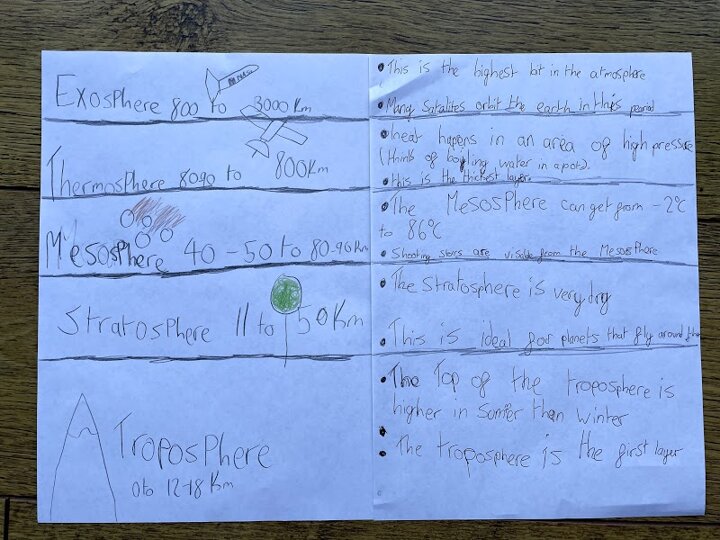 Exosphere 800 to 3000 Km
Thermosphere 80-90 to 800Km
Mesosphere 40-50 to 80-90 Km
Stratosphere 11 to 50Km
Troposphere
0 to 12-18 Km
• This is the highest bit in the atmosphere
• Many Satalites orbit the earth in this period
• heat happens in an area of high pressure
(think of boyling water in a pot).
• this is the thickest layer
• The Mesosphere can get from -2°c
to 86°c
• Shooting stars are visible from the Mesosphere
• The Stratosphere is very dry
• This is ideal for planets that fly around the
• The Top of the troposphere is
higher in Somer than winter
• The troposphere is the first layer